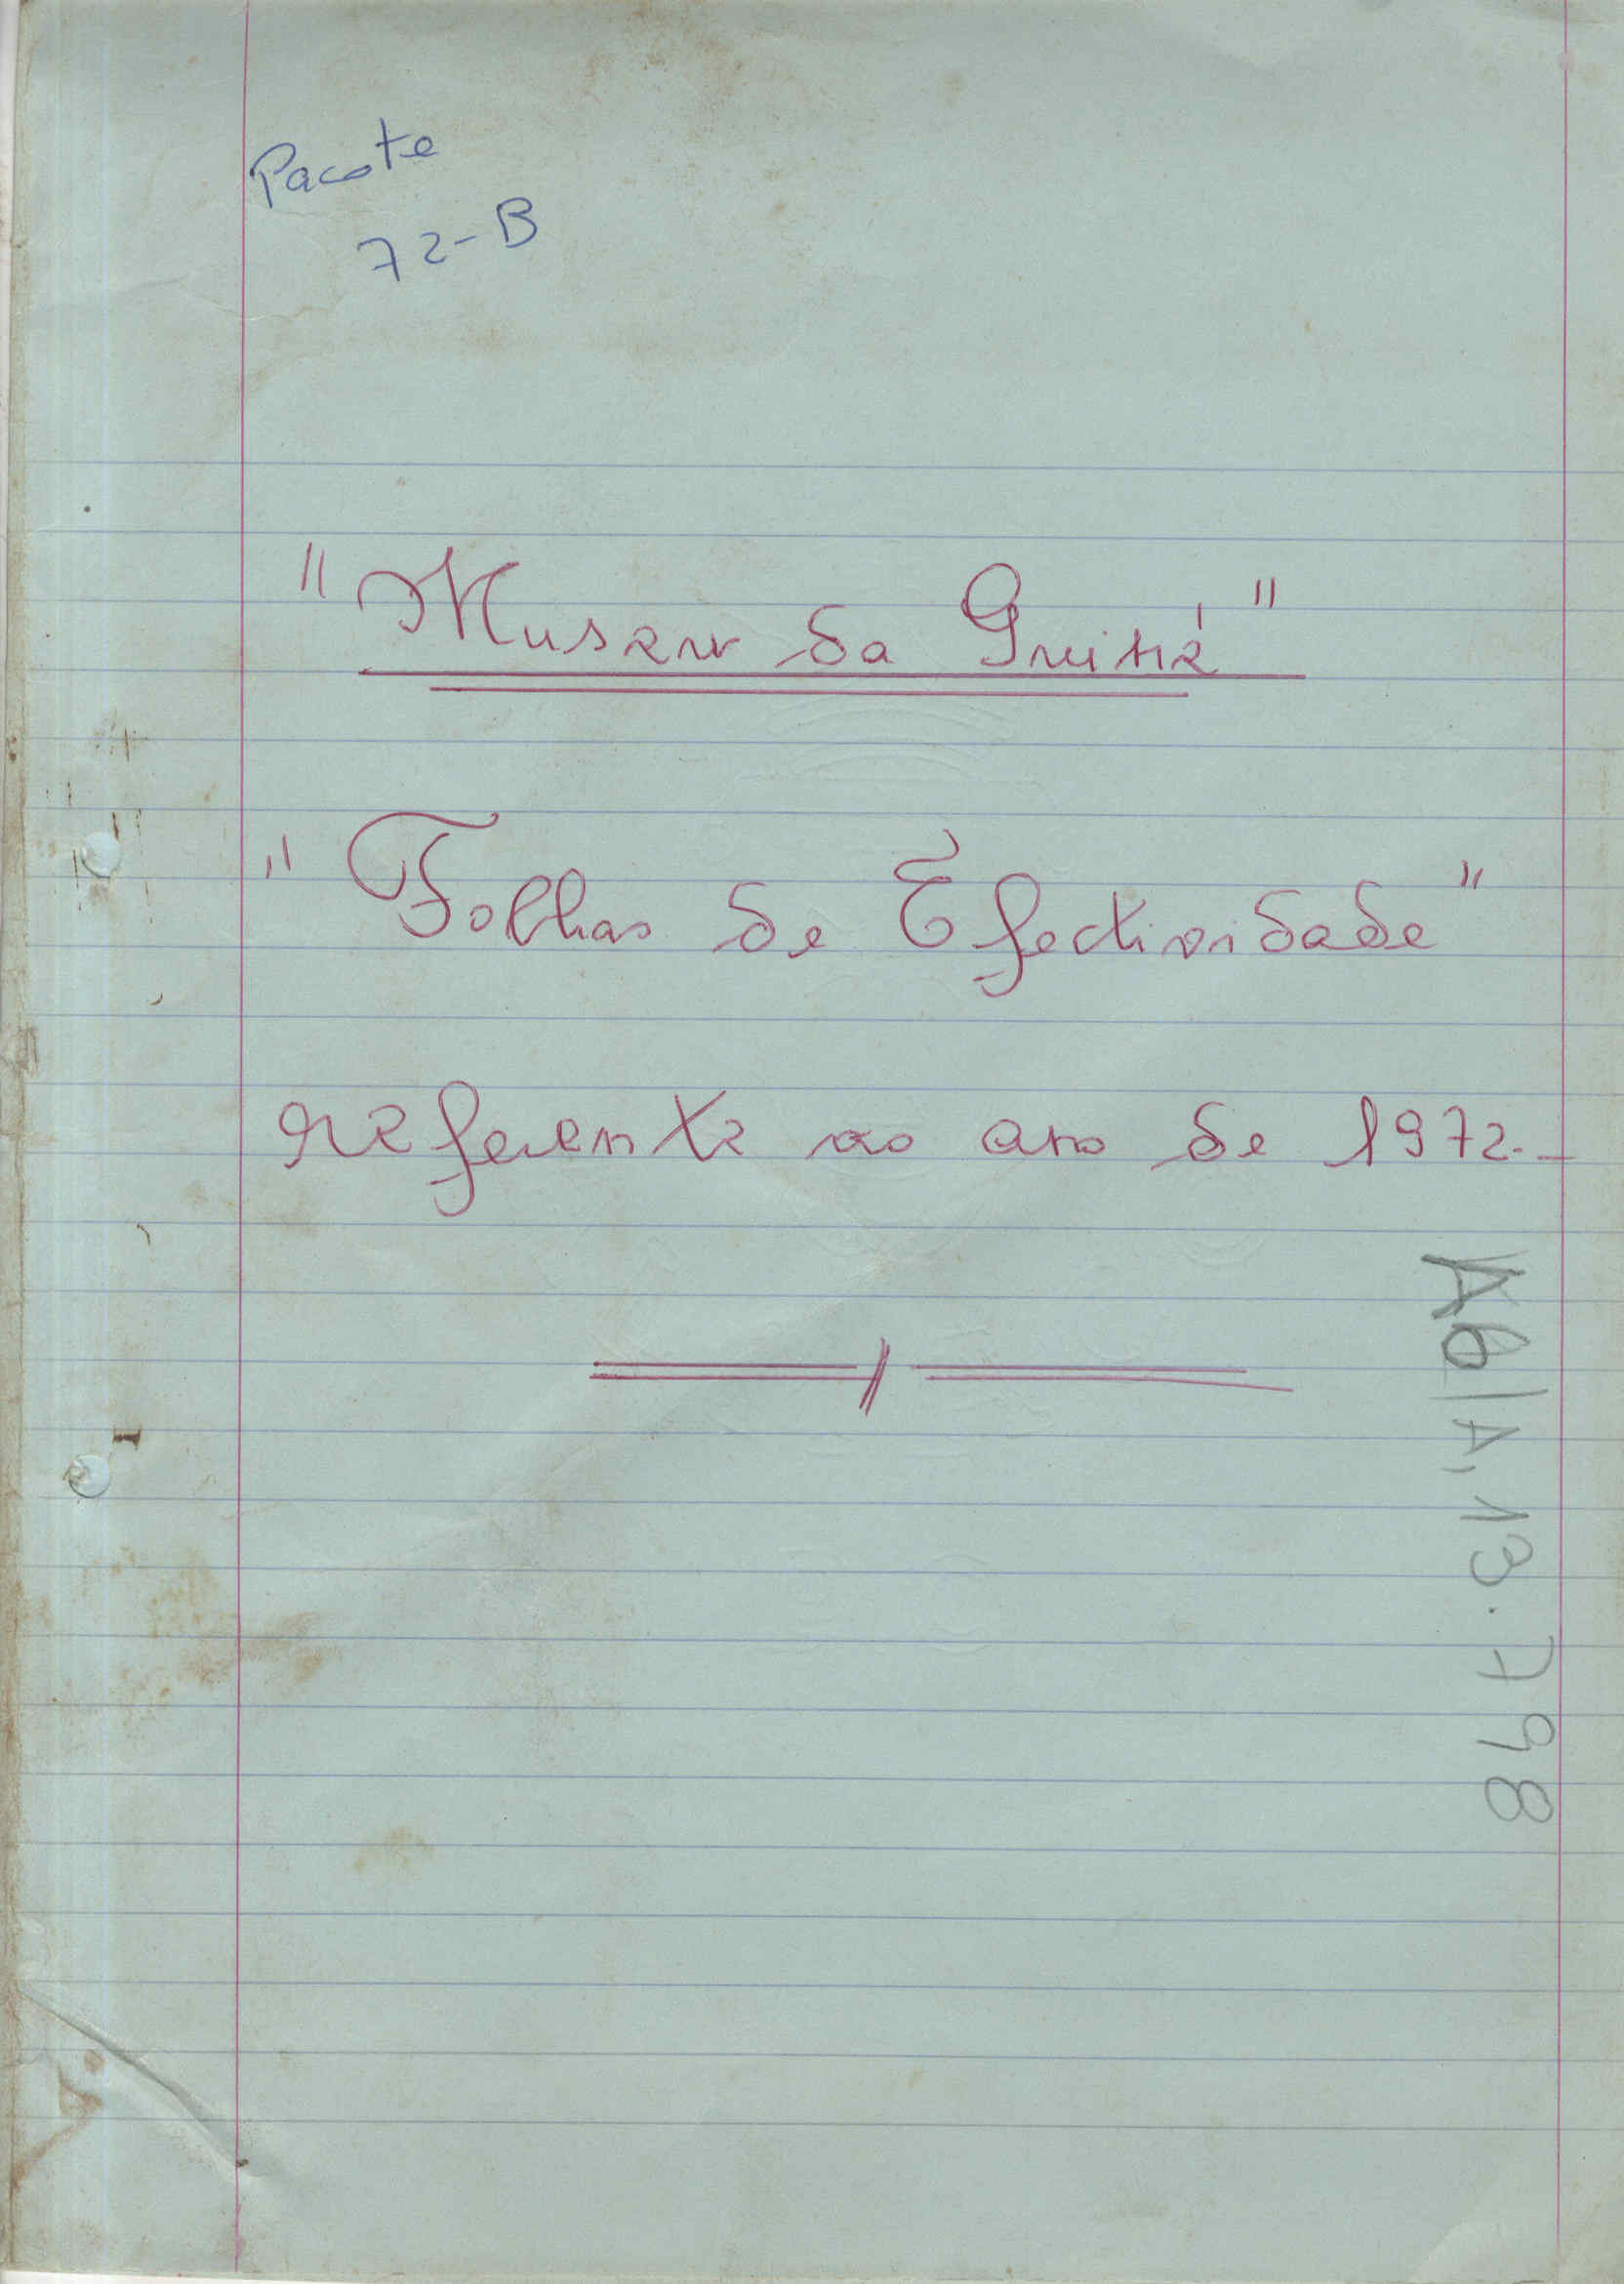 Pacote
72-B
"Museu da Guiné"
"Folhas de Efectividade"
referente ao ano de 1972.-
A6/A, 13.798